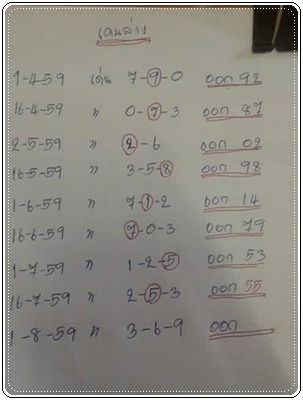 เด่นล่าง
1-4-59 เด่น 7-9-0 ออก 92
16-4-59 " 0-7-3 ออก 87
2-5-59 " 2-6 ออก 02
16-5-59 " 3-5-8 ออก 98
1-6-59 " 7-1-2 ออก 14
16-6-59 " 7-0-3 ออก 79
1-7-59 " 1-2-5 ออก 53
16-7-59 " 2-5-3 ออก 55
1-8-59 " 3-6-9 ออก